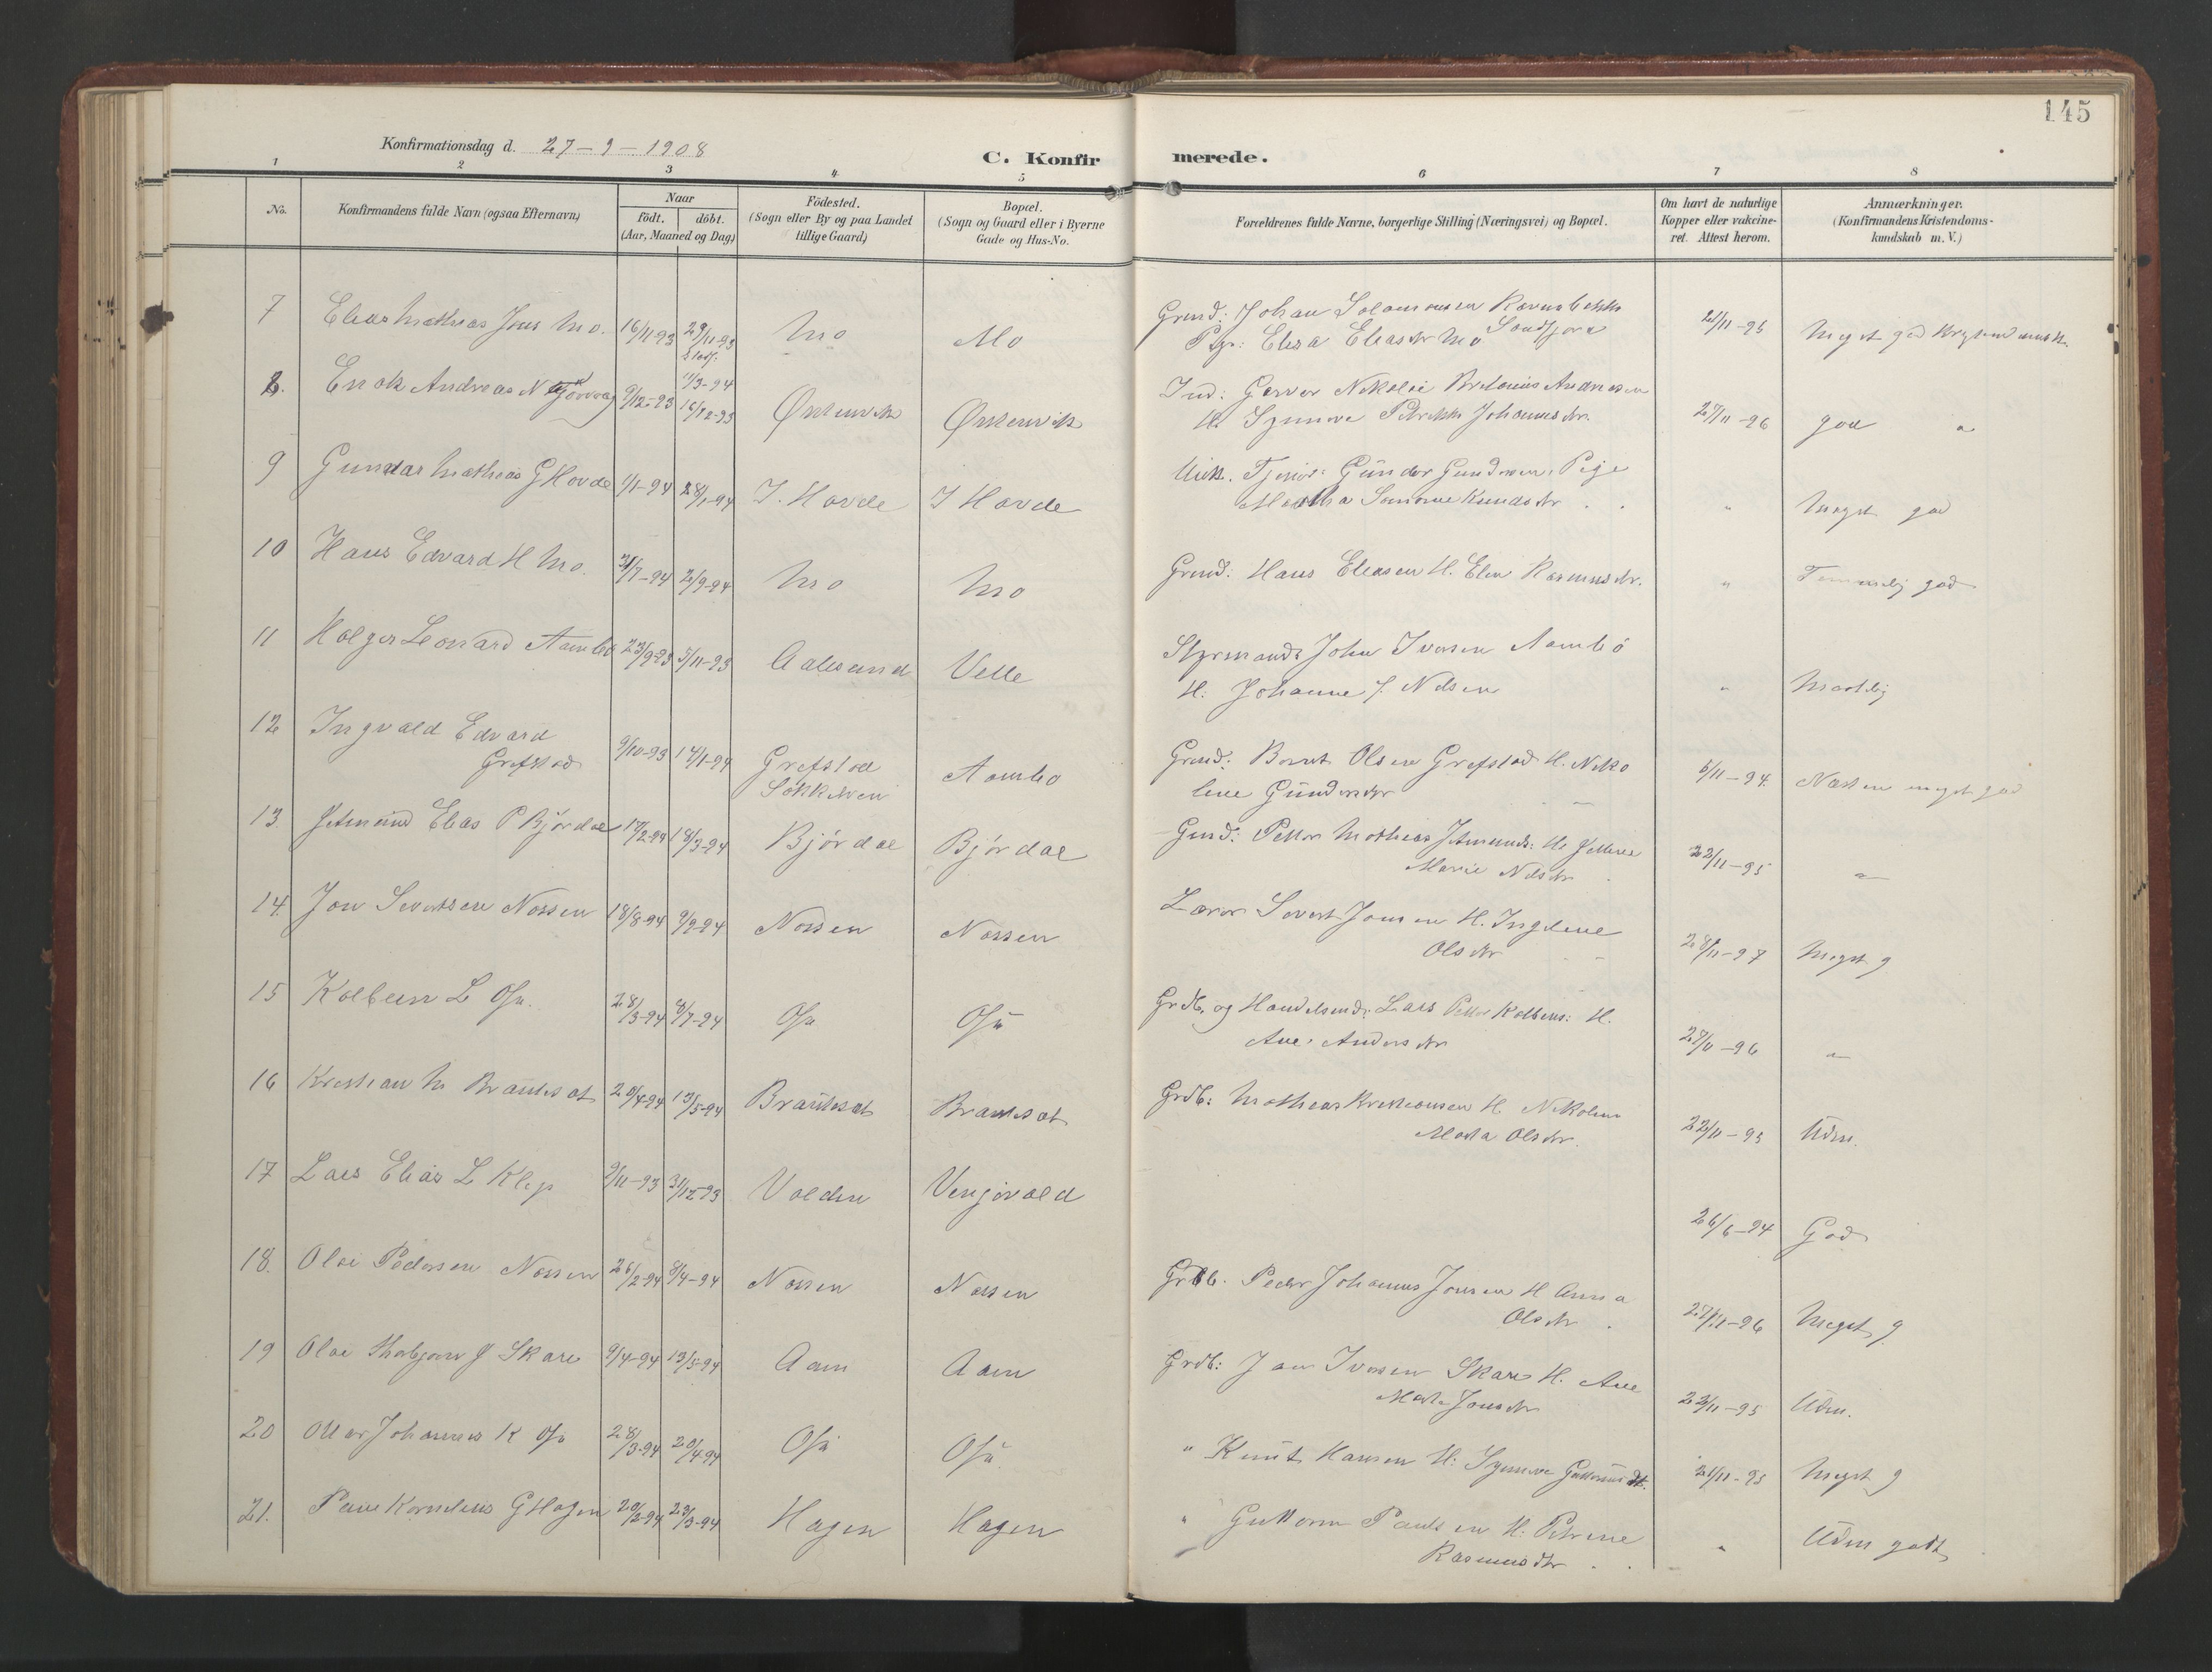 145
Konfirmationsdag d. 27-9-1908
C. Konfirmerede.
1 2 3 4 5 6 7 8
No.
Konfirmandens fulde Navn (ogsaa Efternavn)
Naar
födt. döbt.
(Aar, Maaned og Dag)
Födested.
(Sogn eller By og paa Landet
tillige Gaard)
Bopæl.
(Sogn og Gaard eller i Byerne
Gade og Hus-No.
Forældrenes fulde Navne, borgerlige Stilling (Næringsvei) og Bopæl.
Om havt de naturlige
Kopper eller vakcine-
ret. Attest herom.
Anmærkninger.
(Konfirmandens Kristendoms-
kundskab m. V.)
7 Elias Mathias Jons Mo. 16/11-93 29/11-93 Mo Mo Grmd: Johan Solamonsen
Pige: Elisa Eliasdtr Mo 21/11-95 Meget god
stadf. 11/3-94
8. Enok Andreas N 9/12-93 16/12-93 Ørstenvik Ørstenvik Ind: Garver Nikolai Andreasen
H. Synnøve Johannesdtr. 27/11-96 god "
9 Gunnar Mathias G Hovde 1/1-94 28/1-94 I. Hovde I Hovde Ugift. Tjener: Gunder Gundersen. Pige
Martha Knudsdtr " Meget god
10 Hans Edvard H Mo. 31/7-94 2/9-94 Mo Mo Grmd: Hans Eliasen H. Elen Rasmusdtr. " Temmelig god
11 Holger Leonard Aambø 23/9-93 5/11-93 Aalesund Velle Styrmand John Iversen Aambö
H. Johanne J. Nilsen " Maadelig
12 Ingvald Edvard
Grefstad 9/10-93 14/1-94 Grefstad
Sökkelven Aambø Grmd: Bernt Olsen Grefstad H. Niko
line Gündersdtr 5/11-94 Næsten meget god
13. Jetmund Elias P Björdal 17/2-94 18/3-94 Björdal Björdal Grmd: Petter Mathias Jetmunds: H.
Marie Nilsdtr 22/11-95 "
14. Jon Severtsen Nossen 18/8-94 9/9-94 Nossen Nossen Lærer Severt Jonsen H. Ingeline
Olsdtr 28/11-97 Meget g
15 Kolbein L Osa. 28/3-94 8/7-94 Osa Osa Grdb. og Handelsmd: Lars Petter Kolbeins: H.
Ane Andersdtr 27/11-96 "
16 Kristian M Brautaset 20/4-94 13/5-94 Brautaset Brautaset Grdb: Mathias Kristiansen H. Nikoline
Marta Olsdtr. 22/11-95 Udm.
17 Lars Elias L Klep 9/11-93 31/12-93 Volden Vinjevold 26/6-94 God
18. Olai Pedersen Nossen 26/2-94 8/4-94 Nossen Nossen Grdb. Peder Johannes Jonsen H Anna
Olsdtr 27/11-96 Meget g
19 Olai Thorbjørn J Skare 9/4-94 13/5-94 Aam Aam Grdb: Jon Iversen Skare H. Ane
Marta Jonsdtr 22/11-95 Udm.
20 Ottar Johannes K Osa 28/3-94 20/4-94 Osa Osa " Knut Hansen H: Synnøve Guttormsdt. 21/11-95 Meget g
21. Paul Kornelius G Hagen 20/2-94 23/3-94 Hagen Hagen " Guttorm Paulsen H: Petrine
Rasmusdtr " Udm godt